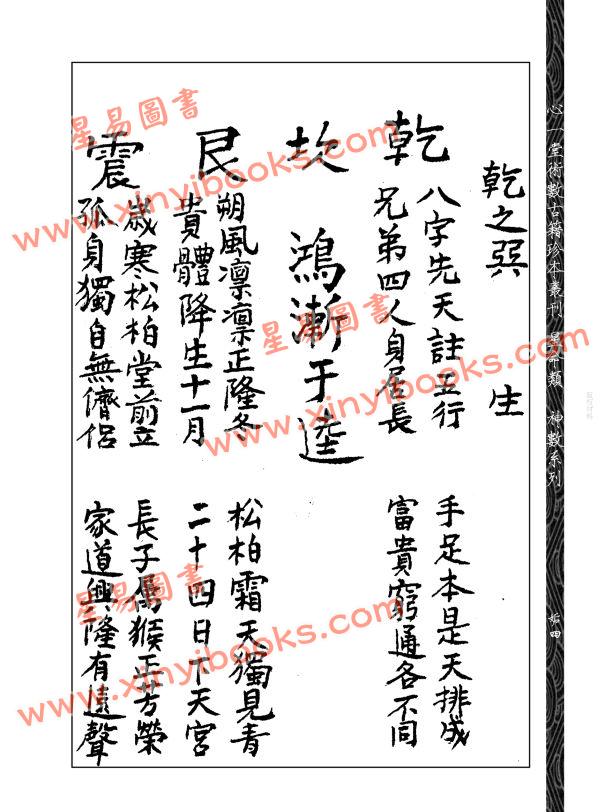 心一堂術數古籍珍本叢刊 星命類 神數系列
乾之巽 生
乾
八字先天註五行 手足本是天排成
兄弟四人身居長 富貴窮通各不同
坎 鴻漸于逵
艮
朔風凛凛正隆冬 松柏霜天獨見青
貴體降生十一月 二十四日下天宮
震
歲寒松柏堂前立 長子属猴正芳榮
孤身獨自無儕侶 家道興隆有遠聲
星易圖書
www.xinyibooks.com
星易圖書
www.xinyibooks.com
星易圖書
www.xinyibooks.com